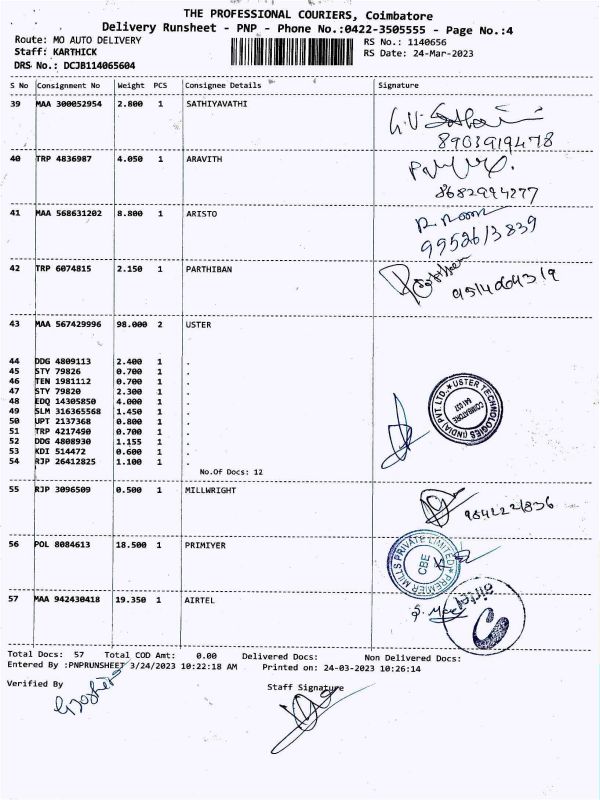 THE PROFESSIONAL COURIERS, Coimbatore
Delivery Runsheet - PNP - Phone No.:0422-3505555 - Page No.:4
Route: MO AUTO DELIVERY RS No.: 1140656
Staff: KARTHICK RS Date: 24-Mar-2023
DRS No.: DCJB114065604
S No Consignment No Weight PCS Consignee Details Signature
39 MAA 300052954 2.800 1 SATHIYAVATHI
8903919478
40 TRP 4836987 4.050 1 ARAVITH
8682994277
41 MAA 568631202 8.800 1 ARISTO
9952613839
42 TRP 6074815 2.150 1 PARTHIBAN
43 MAA 567429996 98.000 2 USTER
44 DDG 4809113 2.400 1 .
45 STY 79826 0.700 1 .
46 TEN 1981112 0.700 1 .
47 STY 79820 2.300 1 .
48 EDQ 14305850 4.000 1 .
49 SLM 316365568 1.450 1 .
50 UPT 2137368 0.800 1 .
51 TRP 4217490 0.700 1 .
52 DDG 4808930 1.155 1 .
53 KDI 514472 0.600 1 .
54 RJP 26412825 1.100 1 .
No.Of Docs: 12
USTER TECHNOLOGIES (INDIA) PVT. LTD. * COIMBATORE 641 037
55 RJP 3096509 0.500 1 MILLWRIGHT
56 POL 8084613 18.500 1 PRIMIYER
PREMIER MILLS PRIVATE LIMITED * CBE
57 MAA 942430418 19.350 1 AIRTEL
airtel
Total Docs: 57 Total COD Amt: 0.00 Delivered Docs: Non Delivered Docs:
Entered By :PNPRUNSHEET 3/24/2023 10:22:18 AM Printed on: 24-03-2023 10:26:14
Verified By Staff Signature